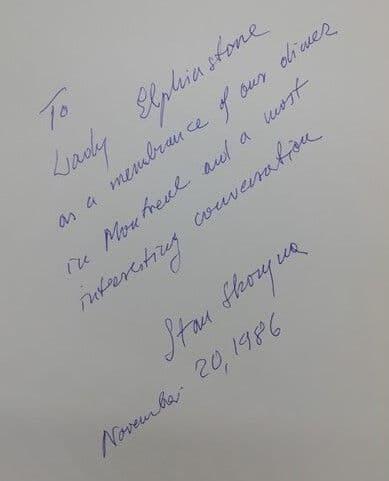 To
Lady Elphinstone
as a membrance of our dinner
in Montreal and a most
interesting conversation
Stan Skoryna
November 20, 1986